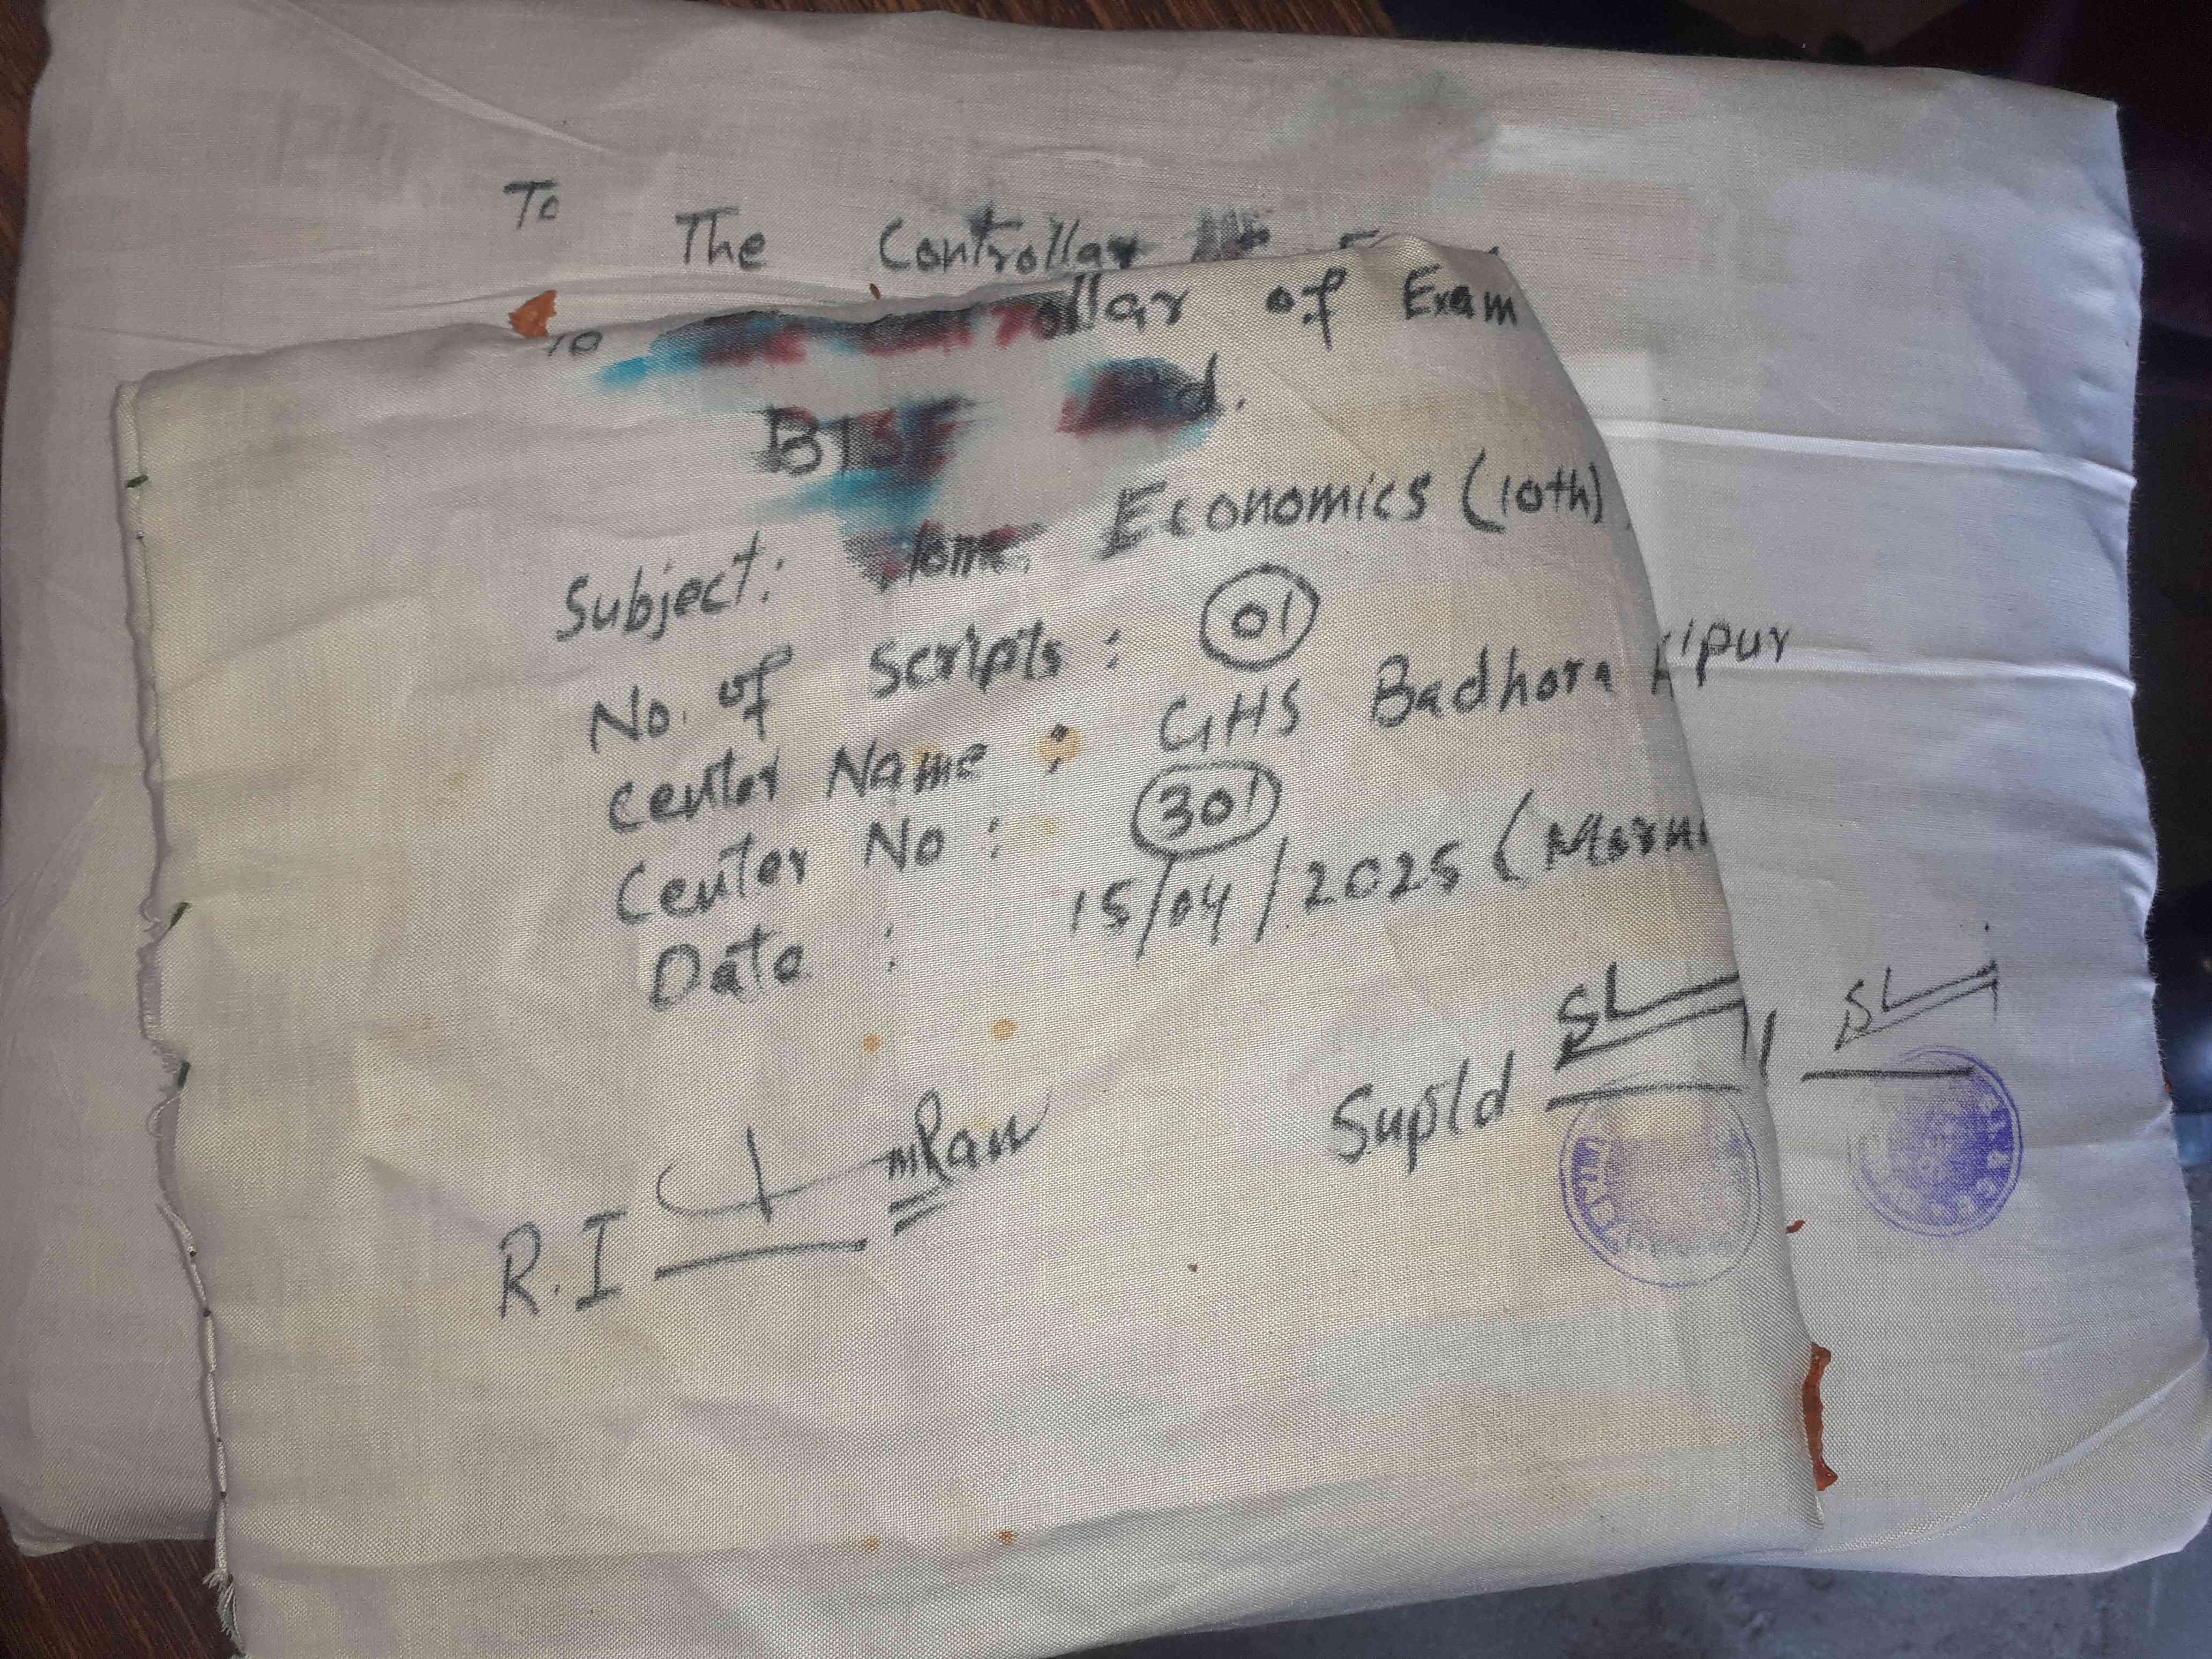 To
The Controllar
To ollar of Exam
BISE d.
Subject: Home Economics (10th)
No. of Scripts: 01
Center Name: GHS Badhora
ipur
Center No: 301
Date: 15/04/2025 (Morni
R.I
Suptd